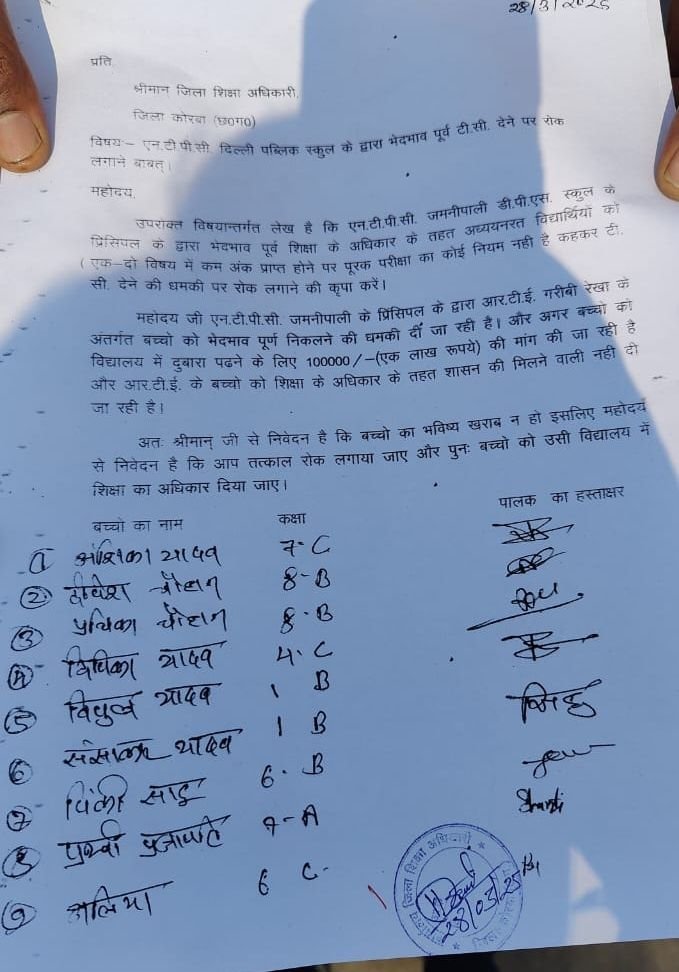 28/3/2025
प्रति,
श्रीमान जिला शिक्षा अधिकारी,
जिला कोरबा (छ0ग0)
विषयः– एन.टी.पी.सी. दिल्ली पब्लिक स्कूल के द्वारा भेदभाव पूर्व टी.सी. देने पर रोक
लगाने बाबत्।
महोदय,
उपरोक्त विषयान्तर्गत लेख है कि एन.टी.पी.सी. जमनीपाली डी.पी.एस. स्कूल के
प्रिंसिपल के द्वारा भेदभाव पूर्व शिक्षा के अधिकार के तहत अध्ययनरत विद्यार्थियों को
(एक–दो विषय में कम अंक प्राप्त होने पर पूरक परीक्षा का कोई नियम नही है कहकर टी.
सी. देने की धमकी पर रोक लगाने की कृपा करें।
महोदय जी एन.टी.पी.सी. जमनीपाली के प्रिंसिपल के द्वारा आर.टी.ई. गरीबी रेखा के
अंतर्गत बच्चो को भेदभाव पूर्ण निकलने की धमकी दीं जा रही है। और अगर बच्चो को
विद्यालय में दुबारा पढने के लिए 100000/–(एक लाख रूपये) की मांग की जा रही है
और आर.टी.ई. के बच्चो को शिक्षा के अधिकार के तहत शासन की मिलने वाली नही दी
जा रही है।
अतः श्रीमान् जी से निवेदन है कि बच्चो का भविष्य खराब न हो इसलिए महोदय
से निवेदन है कि आप तत्काल रोक लगाया जाए और पुनः बच्चो को उसी विद्यालय में
शिक्षा का अधिकार दिया जाए।
बच्चो का नाम कक्षा पालक का हस्ताक्षर
1 यादव 7-C
2 चौहान 8-B
3 चौहान 8-B
4 यादव 4-C
5 विपुल यादव 1 B
6 यादव 1 B
7 पिंकी साहु 6-B
8 पृथ्वी प्रजापति 7-A
9 अलिमा 6 C-
कार्यालय जिला शिक्षा अधिकारी
28/03/25